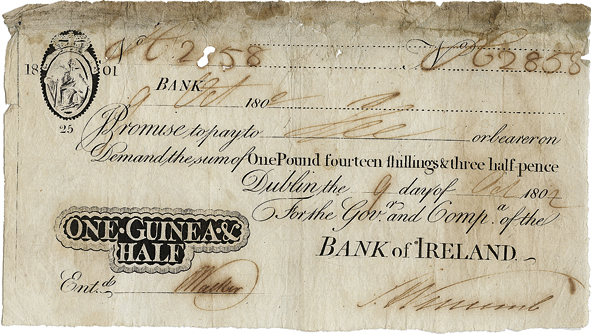 No C2858 No C2858
18 01
BANK
9 Oct 1802
25
Promise to pay to or bearer on
Demand, the sum of One Pound fourteen shillings & three half-pence
Dublin the 9 day of Oct 1802
For the Gov.r and Comp.a of the
ONE·GUINEA·&
HALF
BANK of IRELAND.
Ent.d